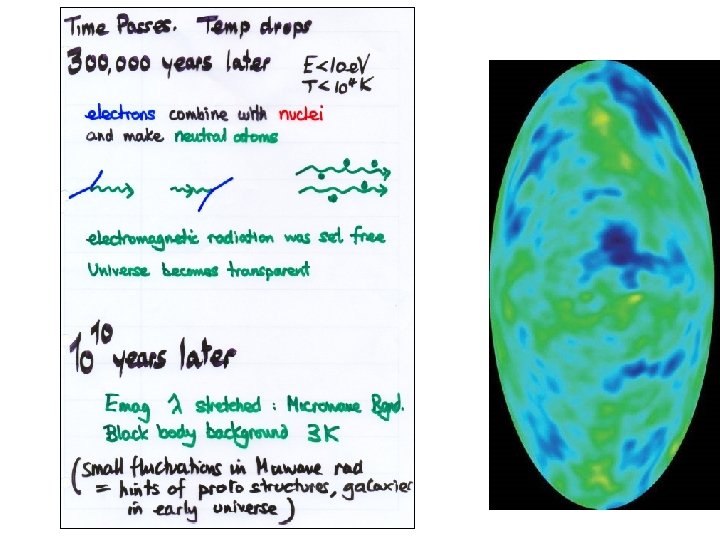 Time Passes. Temp drops
300,000 years later E<10eV
T<10⁴K
electrons combine with nuclei
and make neutral atoms
electromagnetic radiation was set free
Universe becomes transparent
10¹⁰ years later
Emag λ stretched : Microwave Bgnd.
Black body background 3K
(small fluctuations in Muwave rad
= hints of proto structures, galaxies
in early universe)